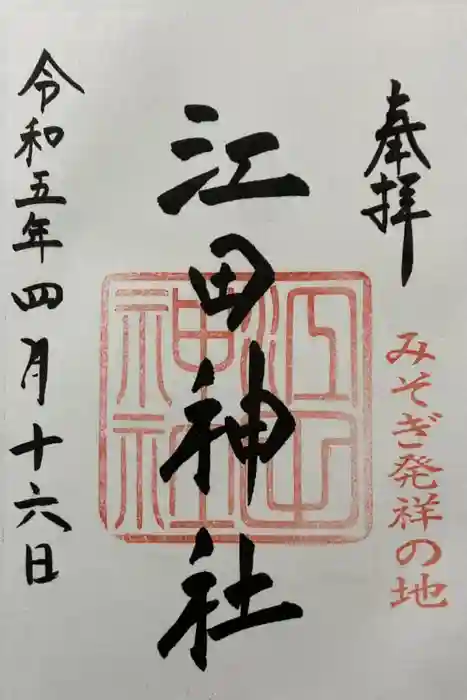 奉拝
みそぎ発祥の地
江田神社
江田神社
令和五年四月十六日